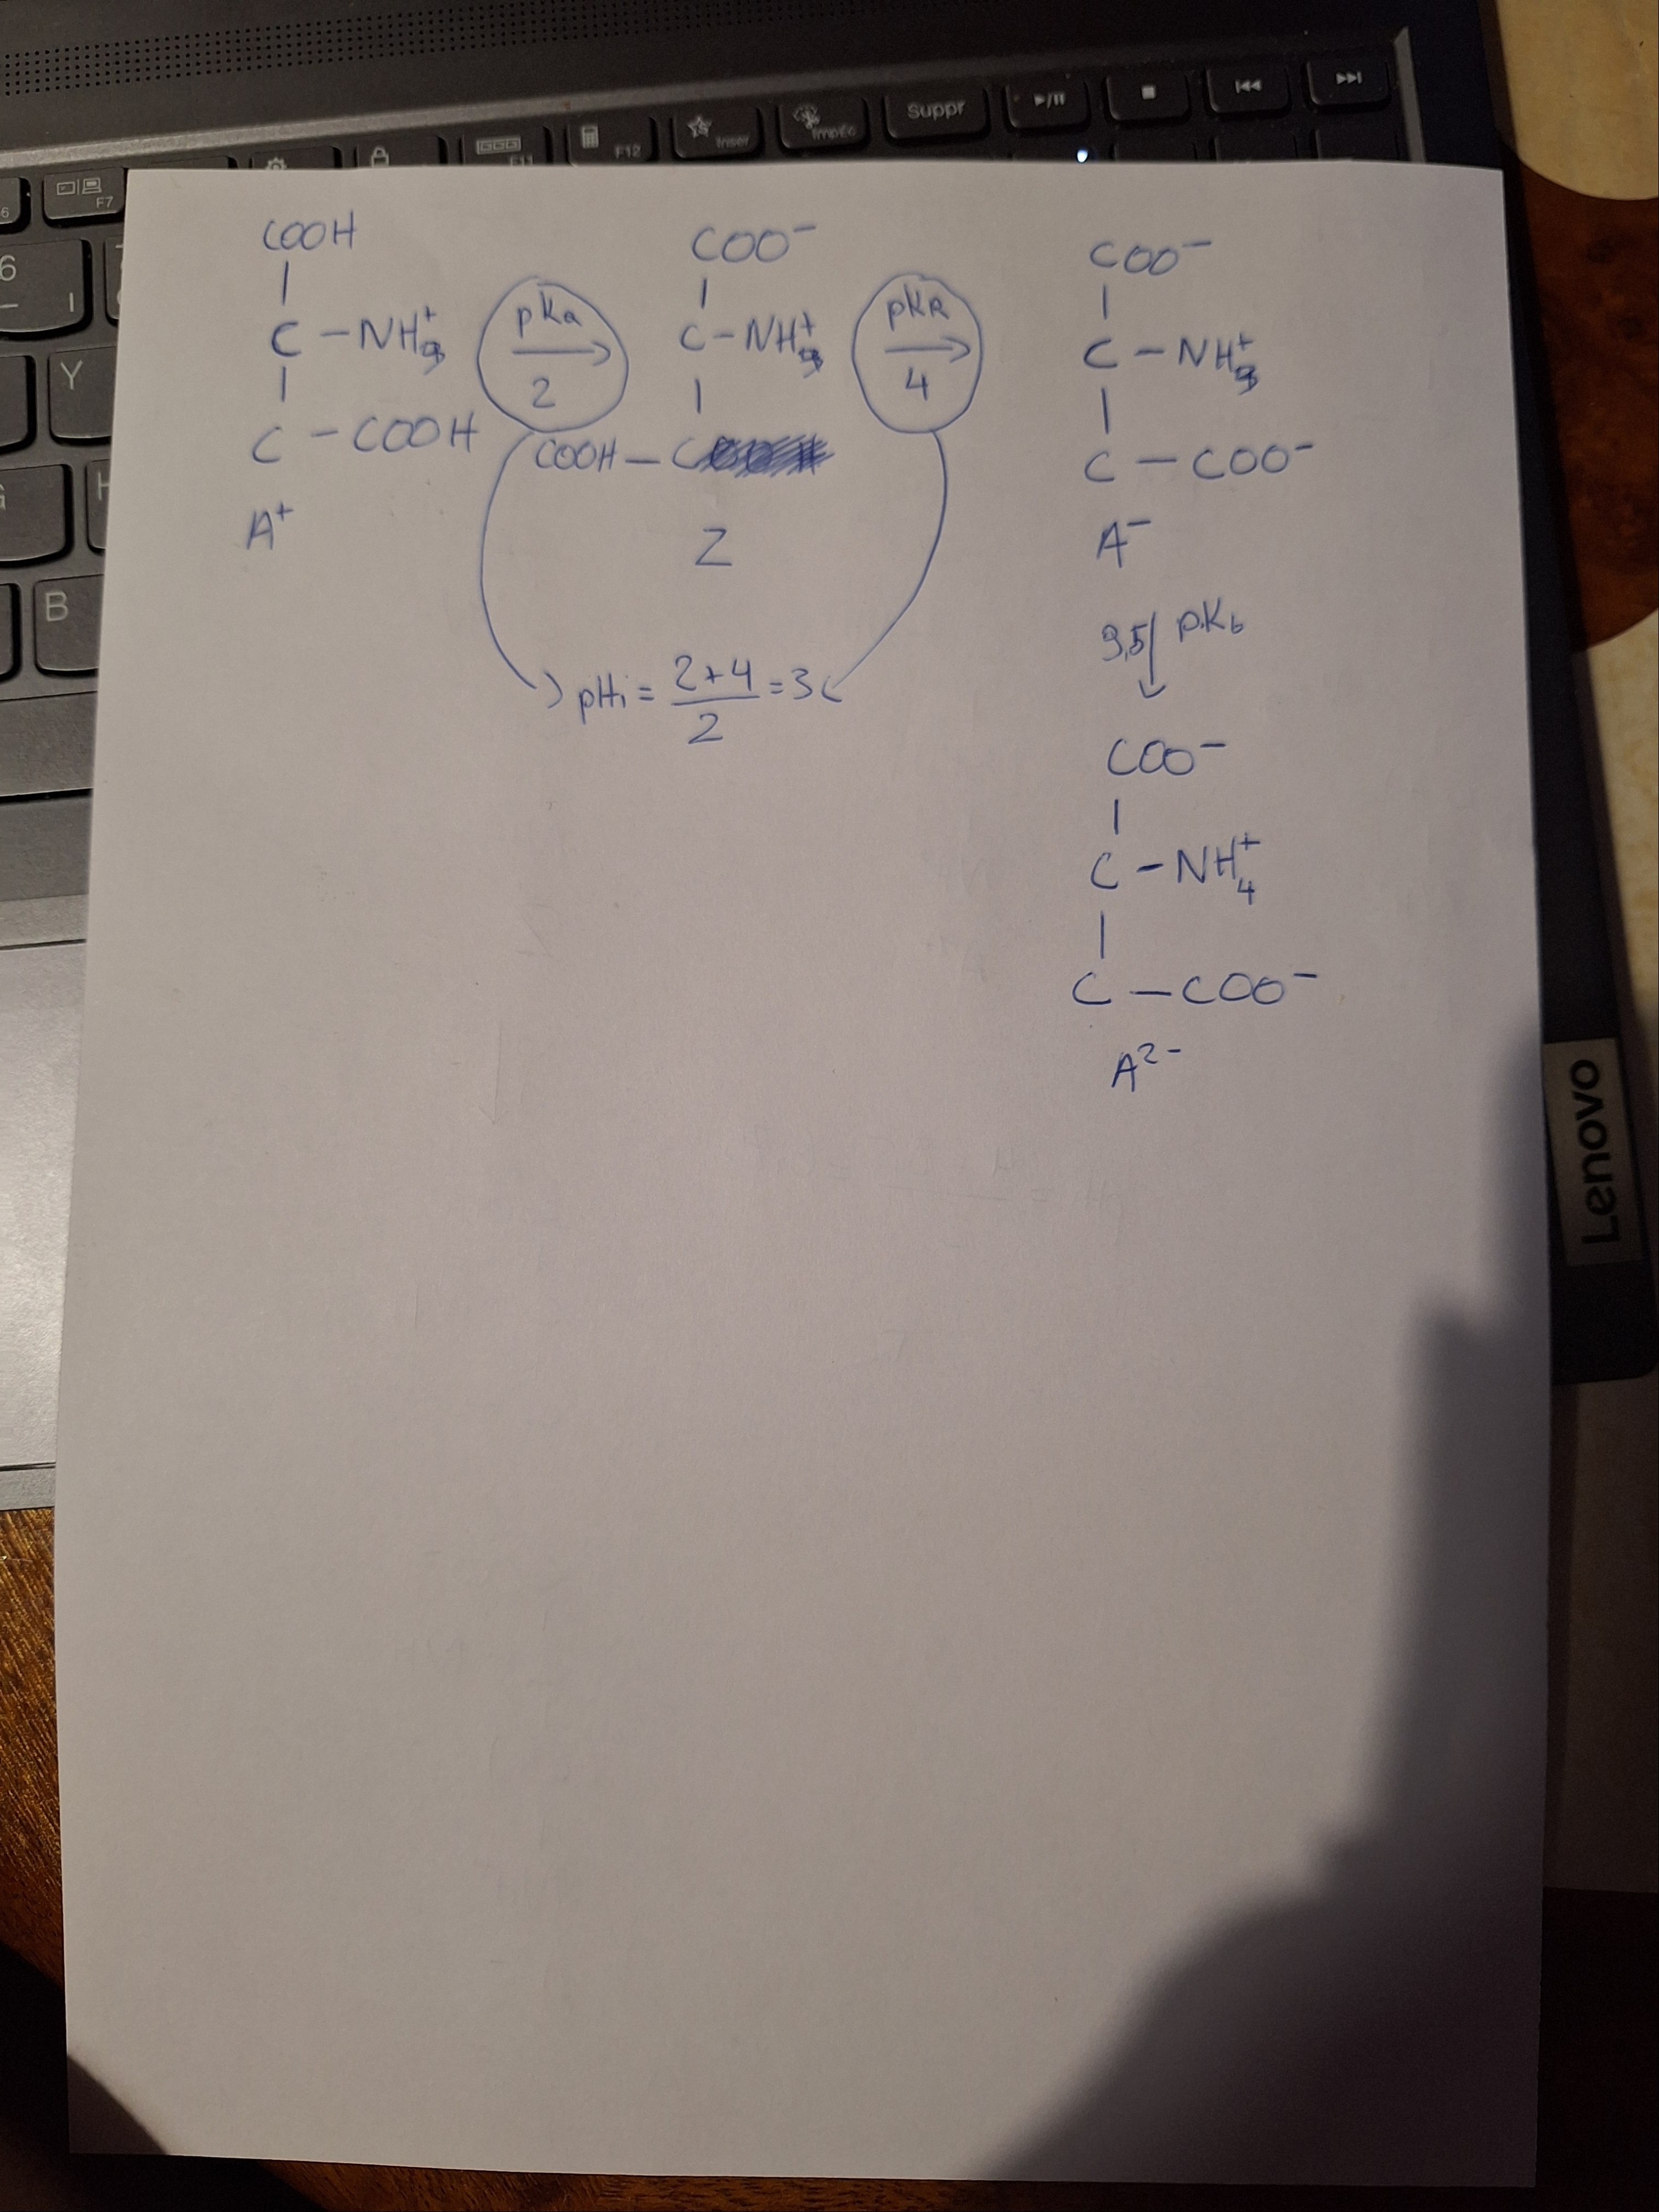 Suppr
Inser
ImpÉc
F12
F11
F7
6
Y
G
H
B
COOH
C - NH3+
C - COOH
A+
pKa
2
COO-
C - NH3+
COOH - C
Z
pKR
4
COO-
C - NH3+
C - COO-
A-
pHi = 2+4/2 = 3
9,5 pKb
COO-
C - NH4+
C - COO-
A2-
Lenovo